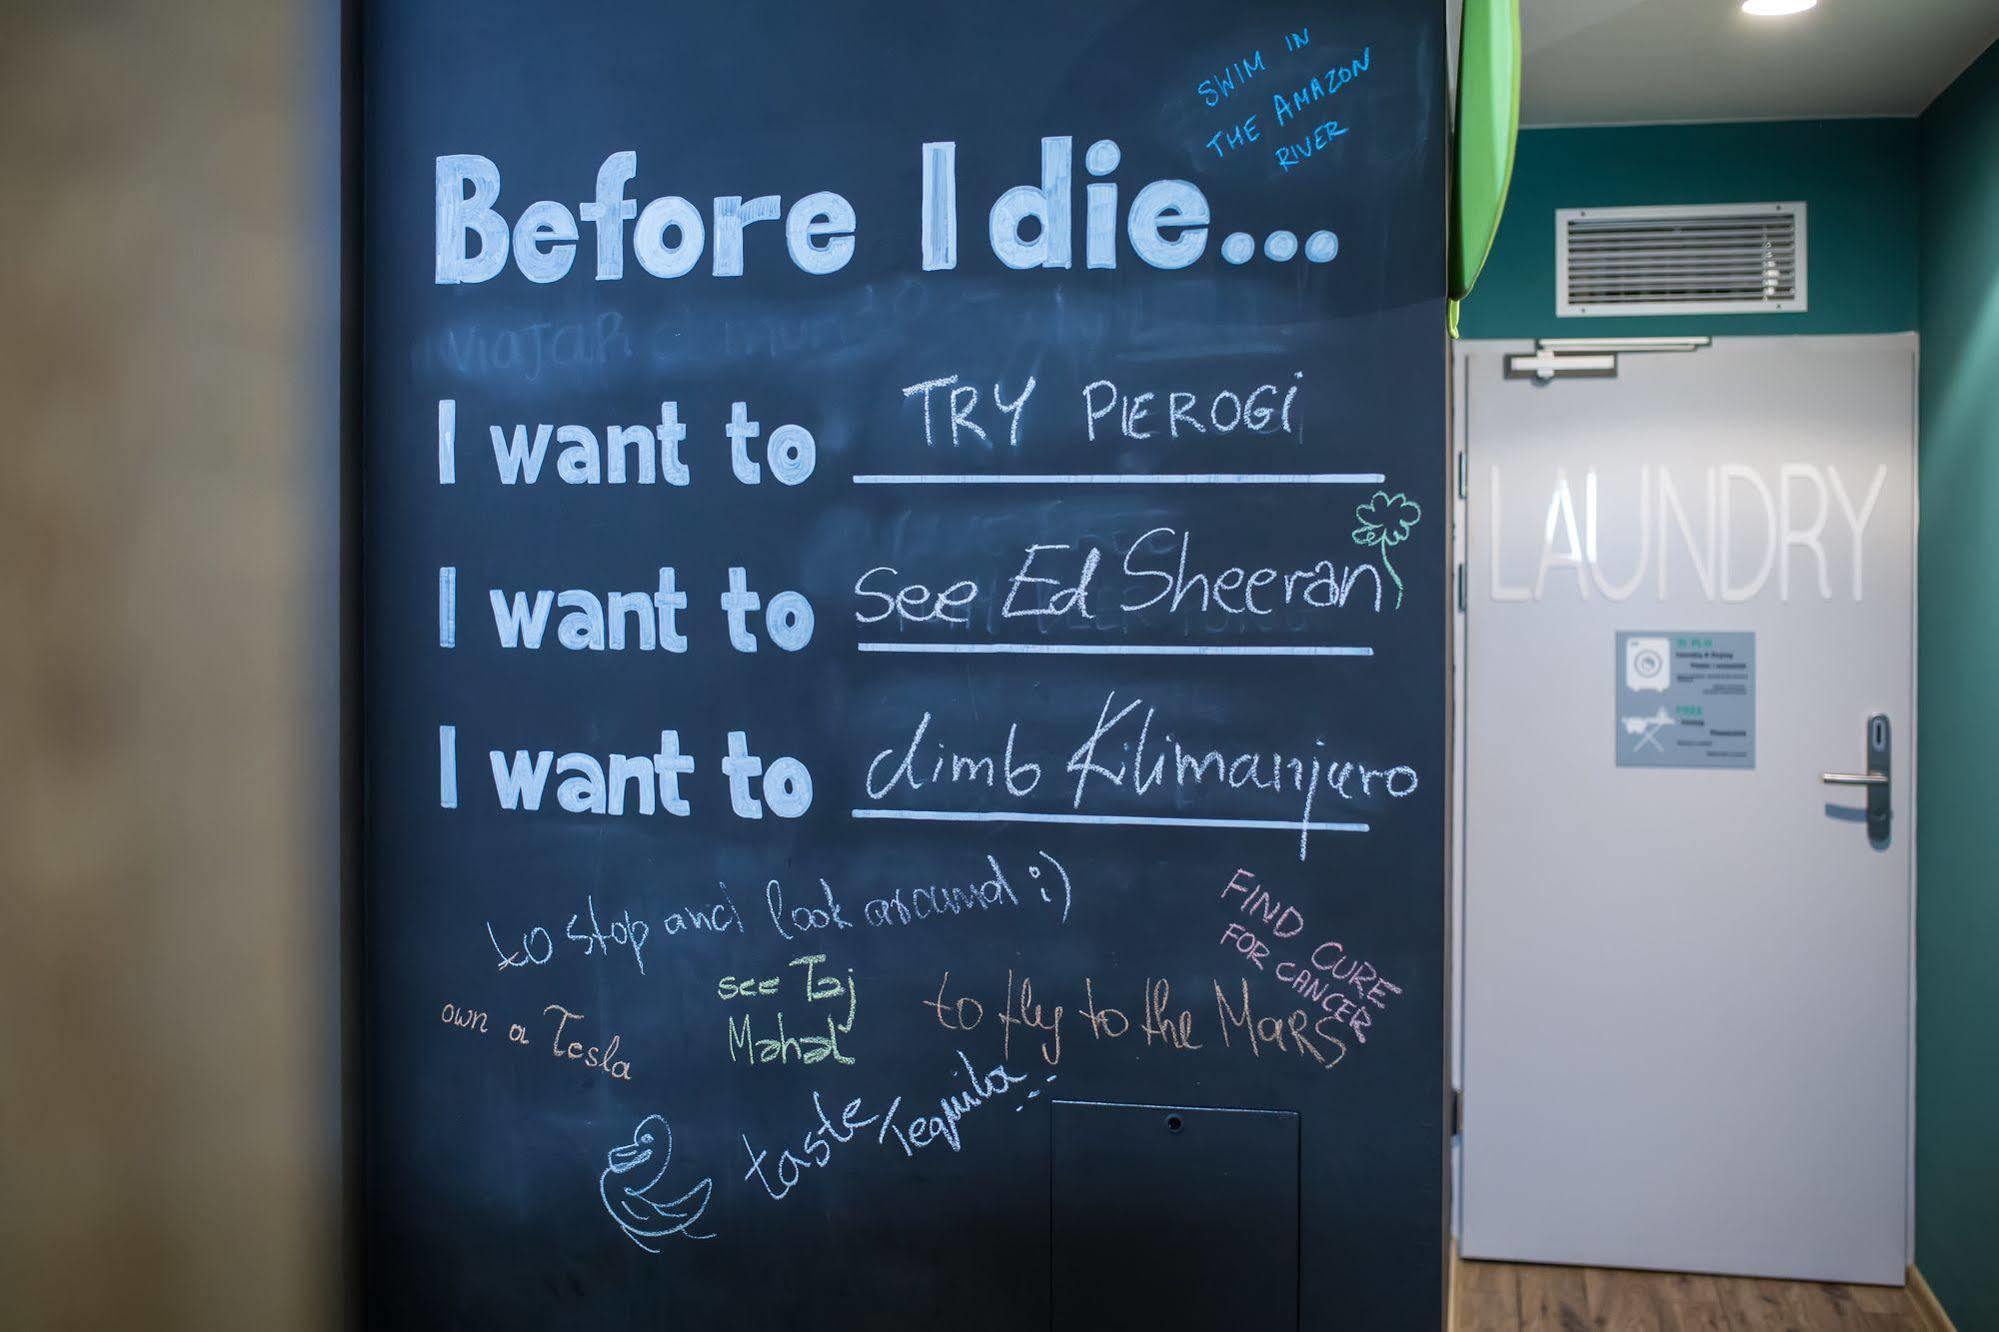 SWIM IN
THE AMAZON
RIVER
Before I die...
viajar
I want to TRY PIEROGI
I want to see Ed Sheeran
I want to climb Kilimanjuro
to stop and look around :)
FIND CURE
FOR CANCER
see Taj
Mahal
own a Tesla
to fly to the MARS
taste Tequila
LAUNDRY
FREE